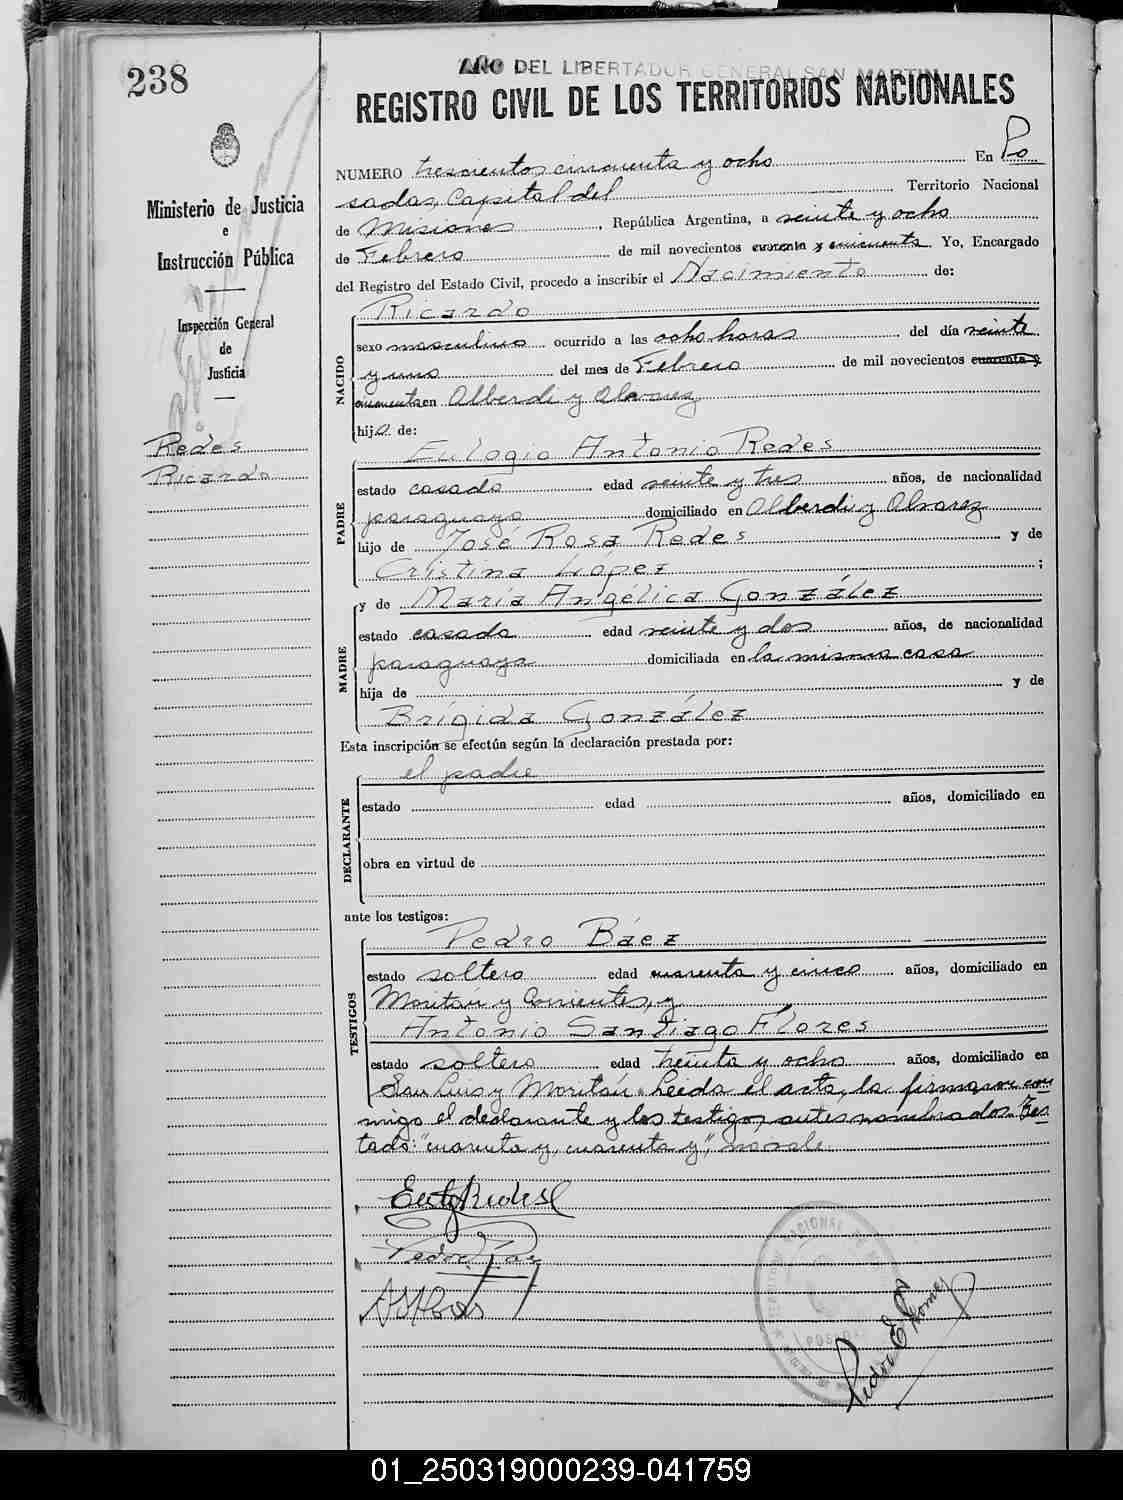 238
AÑO DEL LIBERTADOR GENERAL SAN MARTIN
REGISTRO CIVIL DE LOS TERRITORIOS NACIONALES
Ministerio de Justicia
e
Instrucción Pública
Inspección General
de
Justicia
Redes
Ricardo
NUMERO trescientos cincuenta y ocho En Po
sadas, Capital del Territorio Nacional
de Misiones, República Argentina, a veinte y ocho
de Febrero de mil novecientos cuarenta y cincuenta. Yo, Encargado
del Registro del Estado Civil, procedo a inscribir el Nacimiento de:
NACIDO
Ricardo
sexo masculino ocurrido a las ocho horas del día veinte
y uno del mes de Febrero de mil novecientos cuarenta y
cincuenta en Alberdi y Alvarez
hijo de:
PADRE
Eulogio Antonio Redes
estado casado edad veinte y tres años, de nacionalidad
paraguaya domiciliado en Alberdi y Alvarez
hijo de José Rosa Redes y de
Cristina López ;
MADRE
y de María Angélica González
estado casada edad veinte y dos años, de nacionalidad
paraguaya domiciliada en la misma casa
hija de y de
Brígida González
Esta inscripción se efectúa según la declaración prestada por:
DECLARANTE
el padre
estado edad años, domiciliado en
obra en virtud de
ante los testigos:
TESTIGOS
Pedro Báez
estado soltero edad cuarenta y cinco años, domiciliado en
Moritán y Corrientes, y
Antonio Santiago Flores
estado soltero edad treinta y ocho años, domiciliado en
San Luis y Moritán. Leida el acta, la firmaron con
migo el declarante y los testigos antes nombrados. Tes
tado: "cuarenta y, cuarenta y", no vale.
Pedro E Gomez
01_250319000239-041759